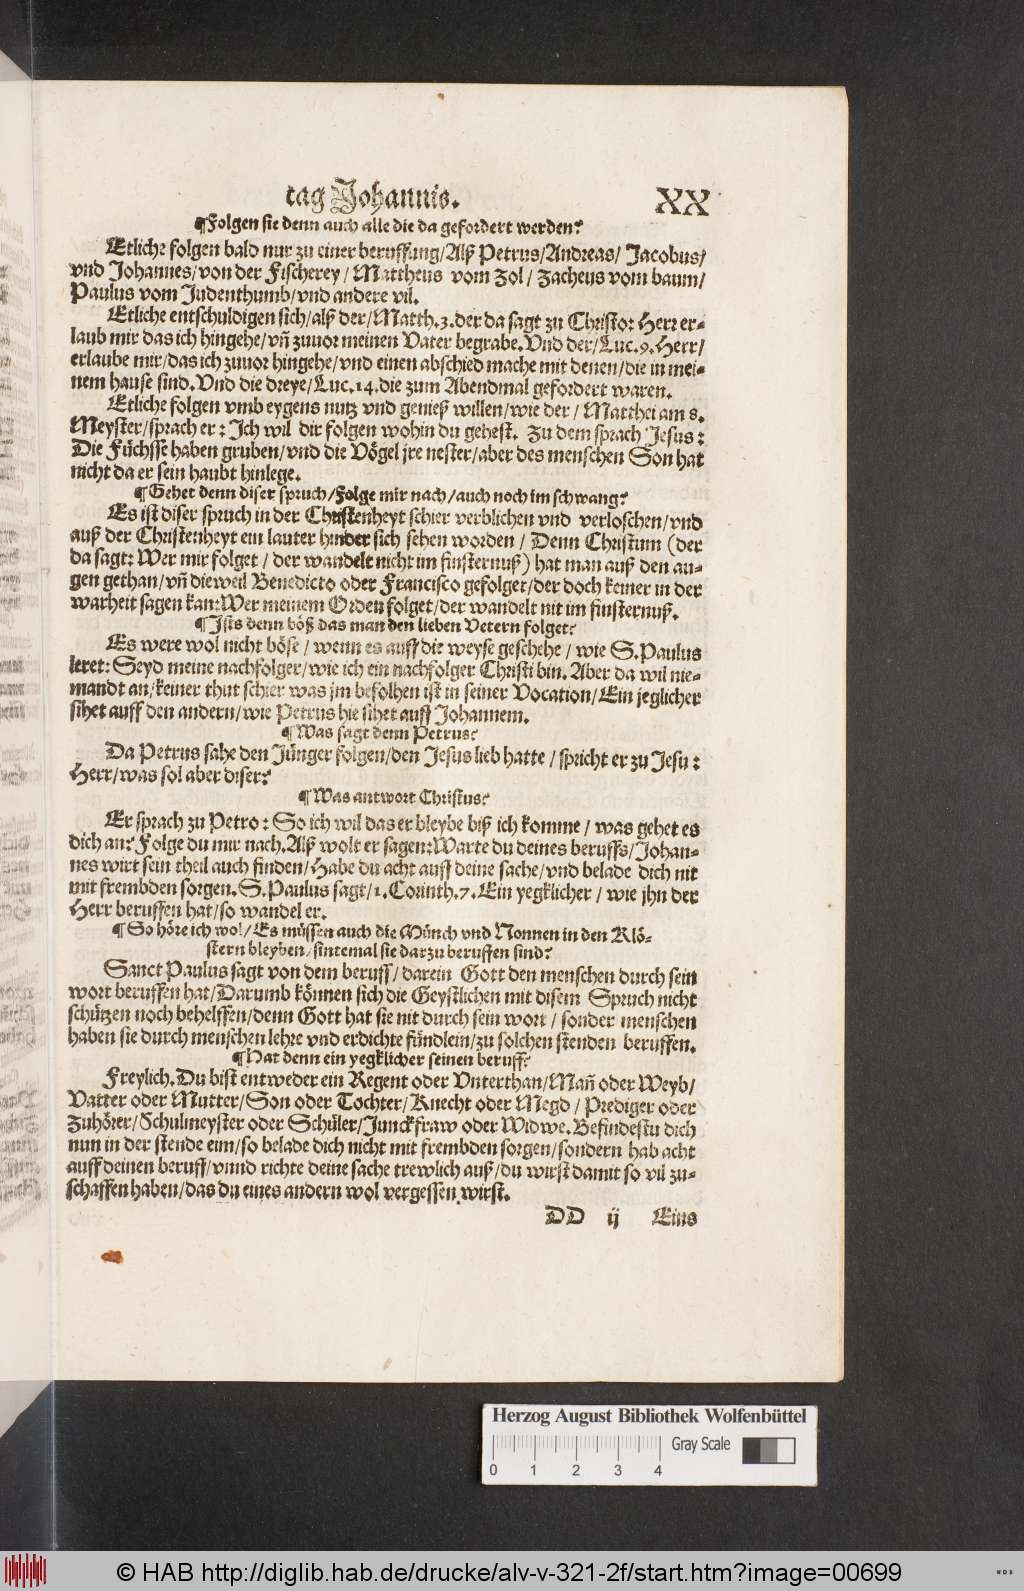 tag Johannis. XX
¶Folgen sie denn auch alle die da gefordert werden?
Etliche folgen bald nur zu einer beruffung/Alß Petrus/Andreas/ Jacobus/
vnd Johannes/von der Fischerey / Mattheus vom Zol / Zacheus vom baum/
Paulus vom Judenthumb/vnd andere vil.
Etliche entschuldigen sich/alß der/Matth.3.der da sagt zu Christo: Herr er-
laub mir das ich hingehe/vñ zuuor meinen Vater begrabe.Vnd der/Luc.9.Herr/
erlaube mir/das ich zuuor hingehe/vnd einen abschied mache mit denen/die in mei-
nem hause sind.Vnd die dreye/Luc.14.die zum Abendmal gefordert waren.
Etliche folgen vmb eygens nutz vnd genieß willen/wie der / Matthei am 8.
Meyster/sprach er: Ich wil dir folgen wohin du gehest. Zu dem sprach Jesus:
Die Füchsse haben gruben/vnd die Vögel jre nester/aber des menschen Son hat
nicht da er sein haubt hinlege.
¶Gehet denn diser spruch/Folge mir nach/auch noch im schwang?
Es ist diser spruch in der Christenheyt schier verblichen vnd verloschen/vnd
auß der Christenheyt ein lauter hinder sich sehen worden / Denn Christum (der
da sagt: Wer mir folget / der wandelt nicht im finsternuß) hat man auß den au-
gen gethan/vñ dieweil Benedicto oder Francisco gefolget/der doch keiner in der
warheit sagen kan:Wer meinem Orden folget/der wandelt nit im finsternuß.
¶Ists denn böß das man den lieben Vetern folget?
Es were wol nicht böse / wenn es auff die weyse geschehe / wie S.Paulus
leret: Seyd meine nachfolger/wie ich ein nachfolger Christi bin. Aber da wil nie-
mandt an/keiner thut schier was jm befolhen ist in seiner Vocation/Ein jeglicher
sihet auff den andern/wie Petrus hie sihet auff Johannem.
¶Was sagt denn Petrus?
Da Petrus sahe den Jünger folgen/den Jesus lieb hatte / spricht er zu Jesu:
Herr/was sol aber diser?
¶Was antwort Christus?
Er sprach zu Petro: So ich wil das er bleybe biß ich komme / was gehet es
dich an? Folge du mir nach.Alß wolt er sagen:Warte du deines beruffs/Johan-
nes wirt sein theil auch finden/Habe du acht auff deine sache/vnd belade dich nit
mit frembden sorgen.S.Paulus sagt/1.Corinth.7.Ein yegklicher / wie jhn der
Herr beruffen hat/so wandel er.
¶So höre ich wol/Es müssen auch die Münch vnd Nonnen in den Klö-
stern bleyben/sintemal sie darzu beruffen sind?
Sanct Paulus sagt von dem beruff/darein Gott den menschen durch sein
wort beruffen hat/Darumb können sich die Geystlichen mit disem Spruch nicht
schützen noch behelffen/denn Gott hat sie nit durch sein wort / sonder menschen
haben sie durch menschen lehre vnd erdichte fündlein/zu solchen stenden beruffen.
¶Hat denn ein yegklicher seinen beruff?
Freylich.Du bist entweder ein Regent oder Vnterthan/Mañ oder Weyb/
Vatter oder Mutter/Son oder Tochter/Knecht oder Megd / Prediger oder
Zuhörer/Schulmeyster oder Schüler/Junckfraw oder Widwe.Befindestu dich
nun in der stende eim/so belade dich nicht mit frembden sorgen/sondern hab acht
auff deinen beruff/vnnd richte deine sache trewlich auß/du wirst damit so vil zu-
schaffen haben/das du eines andern wol vergessen wirst.
DD ij Eins
Herzog August Bibliothek Wolfenbüttel
Gray Scale
0 1 2 3 4
© HAB http://diglib.hab.de/drucke/alv-v-321-2f/start.htm?image=00699